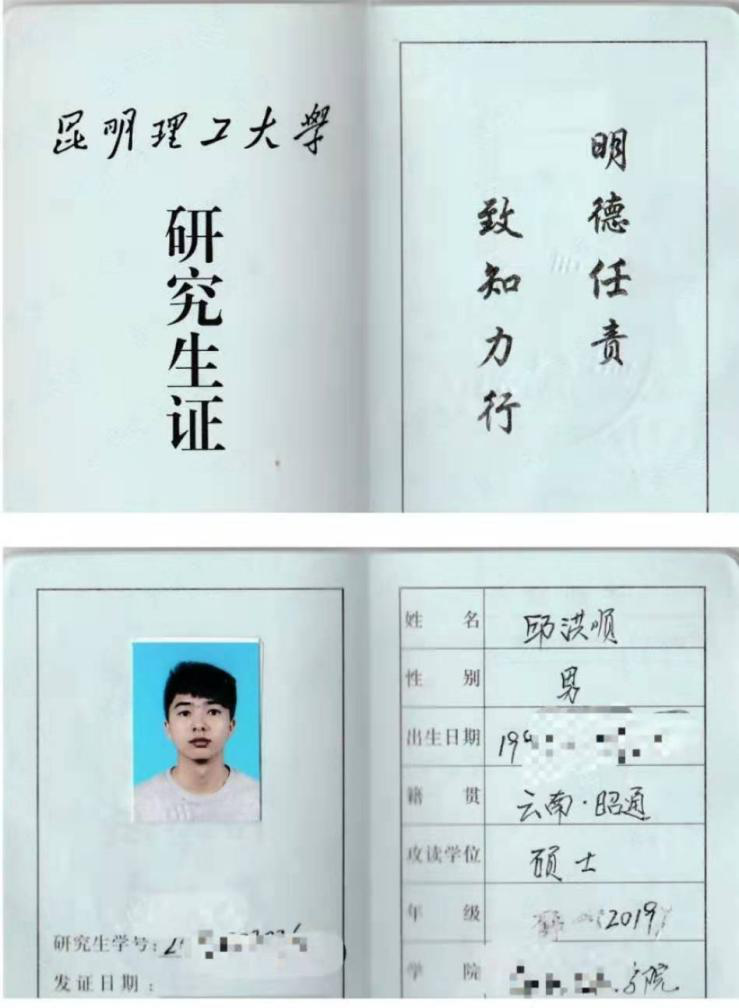 昆明理工大學
研究生证
明德任责
致知力行
姓名 邱洪顺
性别 男
出生日期 19
籍贯 云南·昭通
攻读学位 硕士
年级 2019
学院 学院
研究生学号:
发证日期: